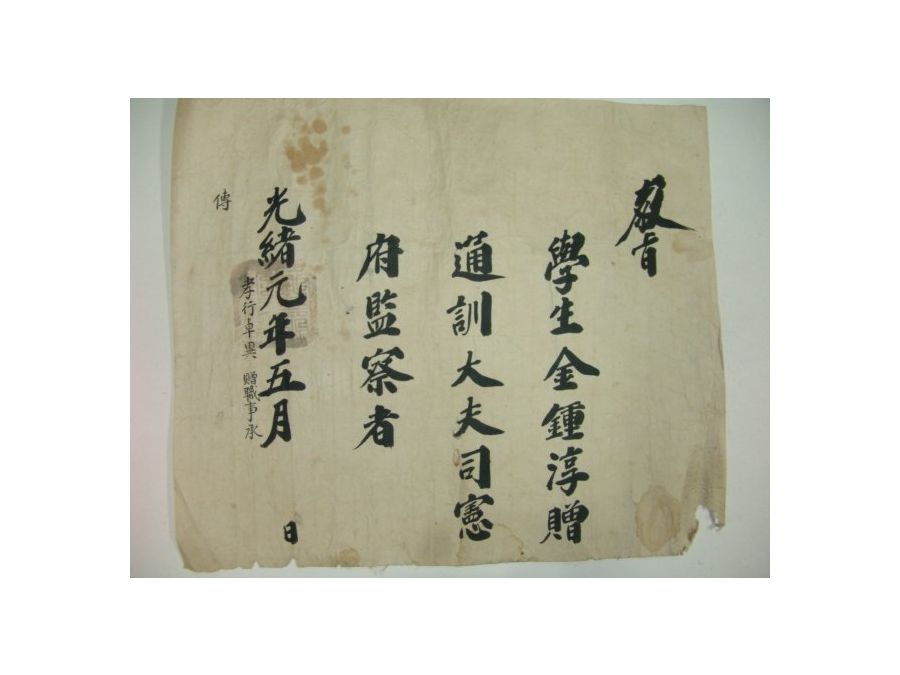 敎旨
學生金鍾淳贈
通訓大夫司憲
府監察者
光緖元年五月 日
孝行卓異 贈職事承
傳